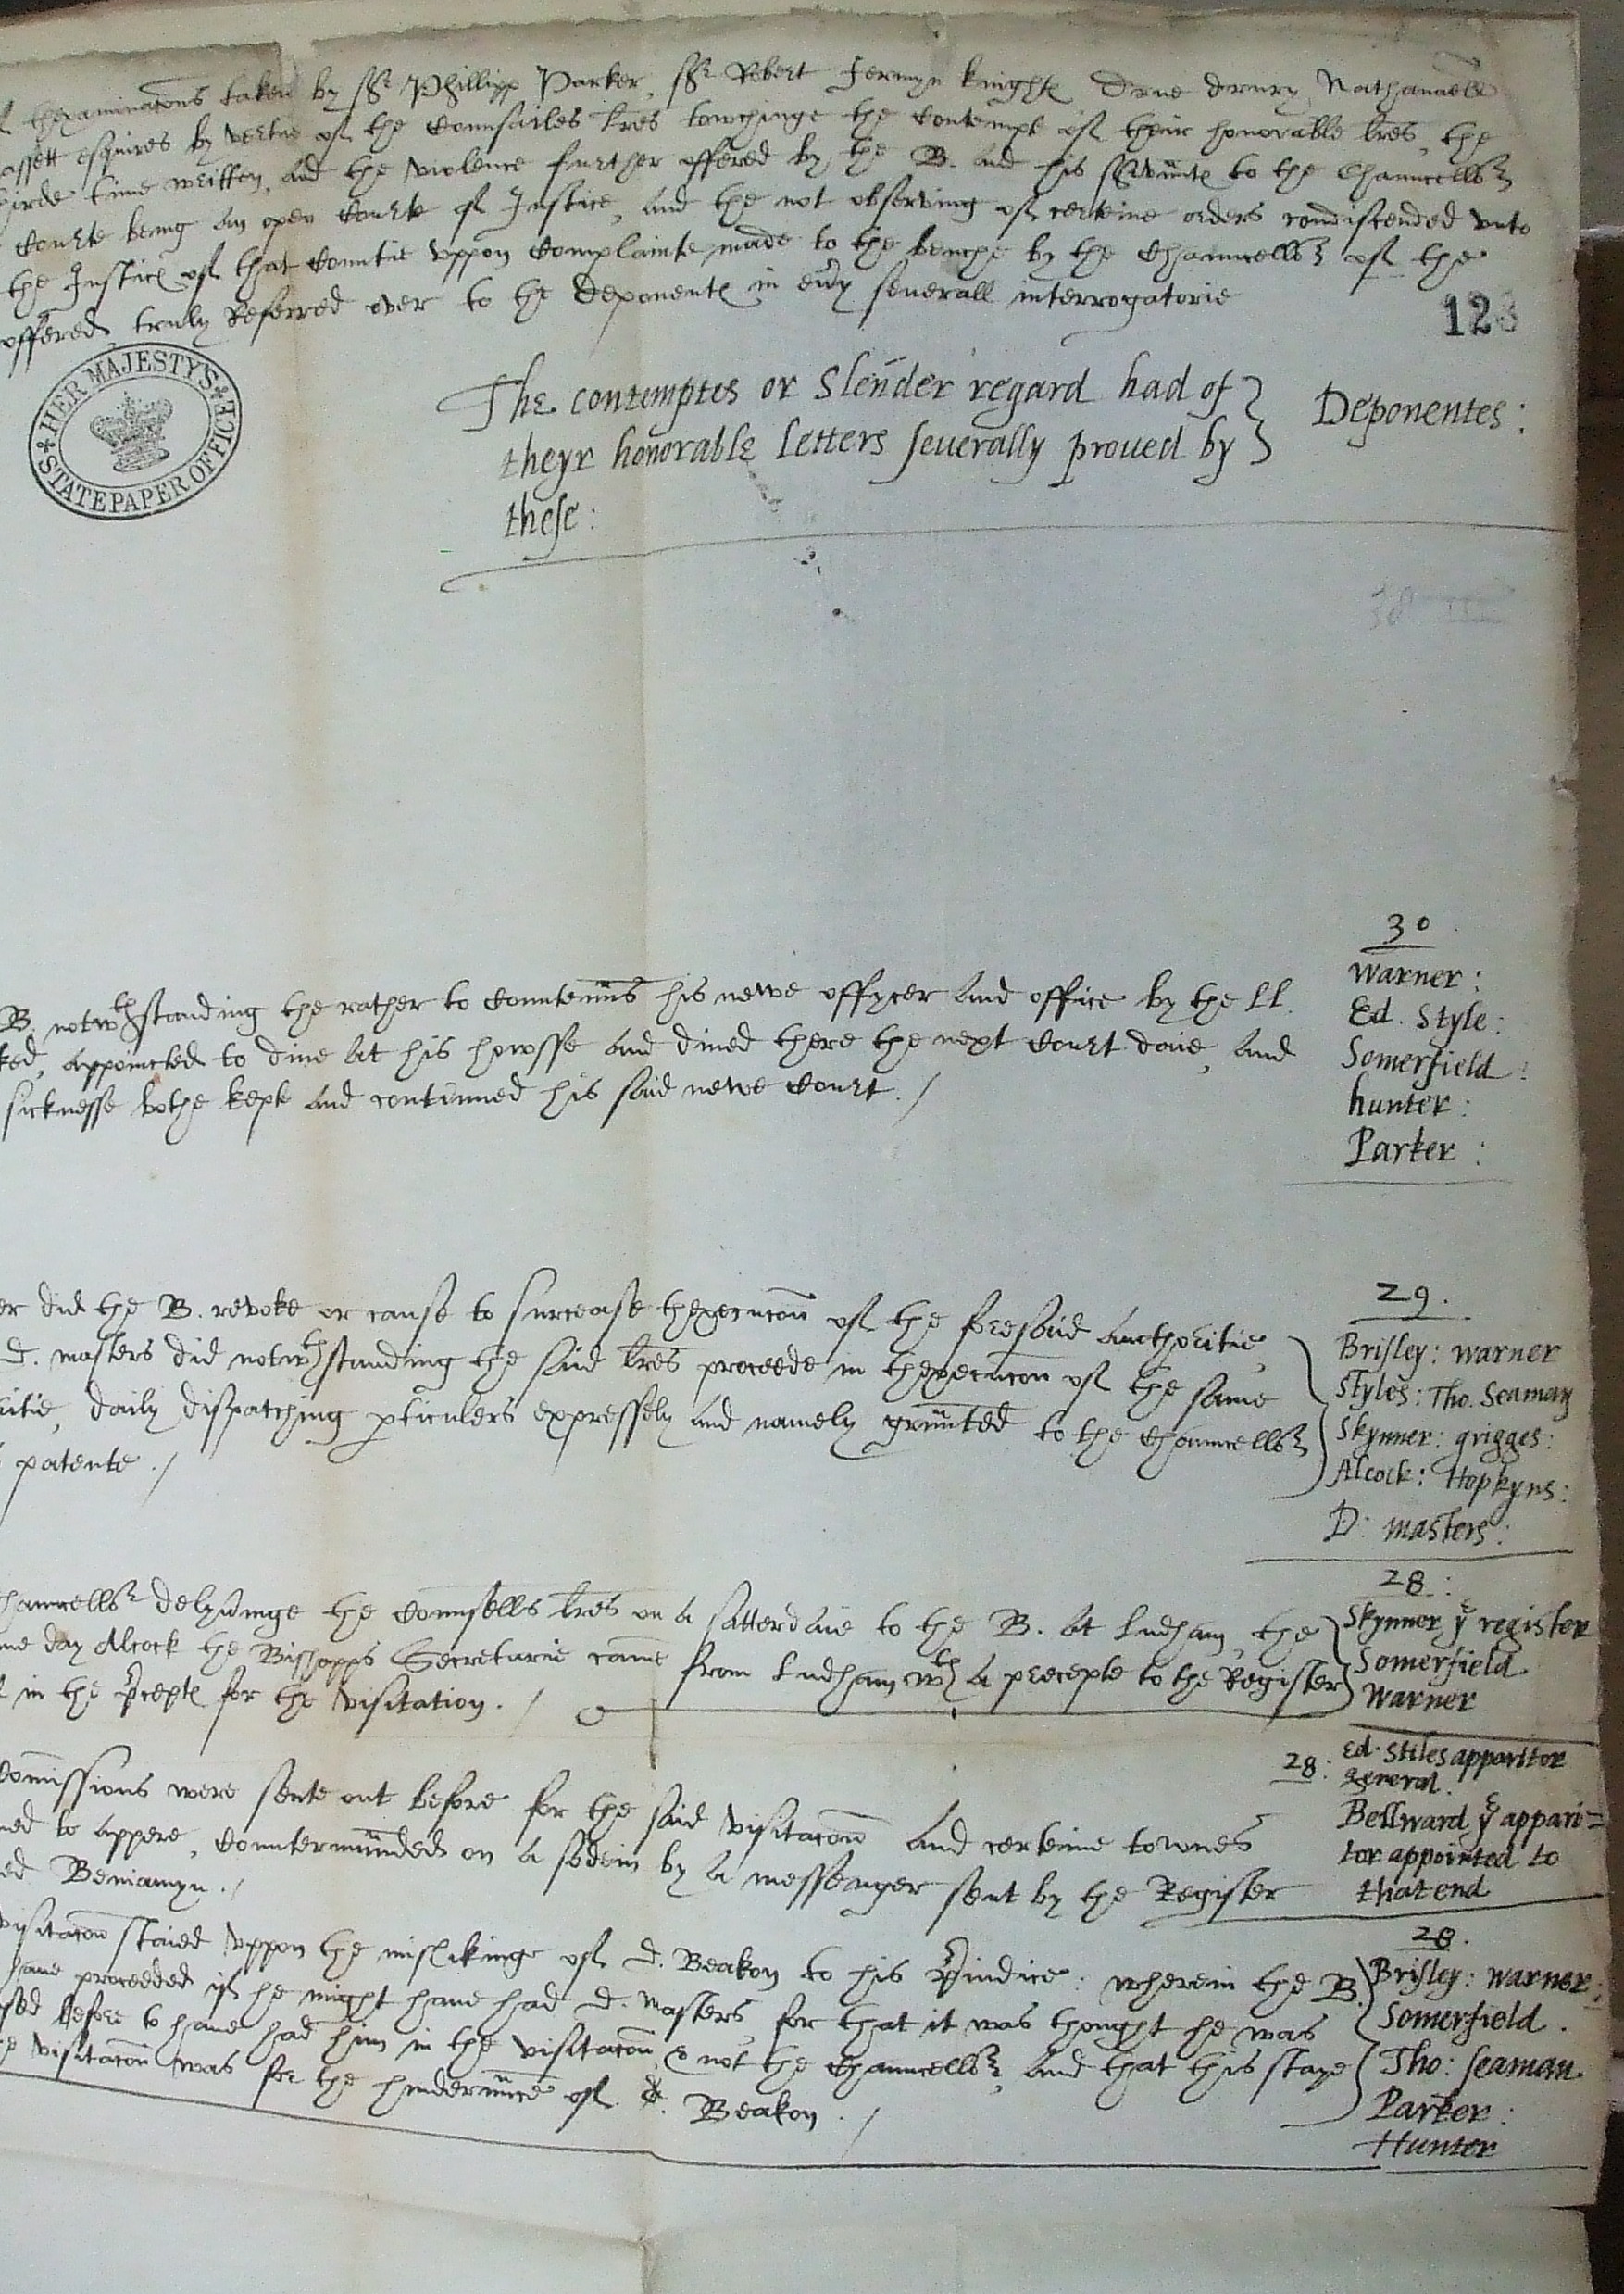 thexaminacons taken by Sr Phillipp Parker, Sr Robert Jermyn knightes Drue Drury, Nathanaell
assett esquires by vertue of the Counsailes lres towchinge the Contempt of their honorable lres, the
irde time written, and the violence further offered by the B. and his servuntes to the Chauncellor
Courte being an open Courte of Justice, and the not observing of certeine orders condiscended unto
the Justices of that Countie uppon Complainte made to the benche by the Chauncellor of the
offered, truly Referred over to the Deponentes in every severall interrogatorie
123
HER MAJESTY'S STATE PAPER OFFICE
The contemptes or Slender regard had of
theyr honorable Letters severally proved by
these:
Deponentes:
30
B. notwthstanding the rather to Countenuns his newe offycer and office by the ll.
ked, appointed to dine at his howsse and dined there the next Court daie, and
sicknesse bothe kept and continued his said newe Court. /
Warner:
Ed. Style:
Somerfield:
hunter:
Parker:
29.
er did the B. revoke or cause to surcease thexecucon of the foresaid authoritie,
d. masters did notwthstanding the said lres proceede in thexecucon of the same
ritie, daily dispatching pticulers expressely and namely graunted to the Chauncellor
patente. /
Brisley: Warner
Styles: Tho. Seaman
Skynner: grigges:
Alcock: Hopkyns:
D: masters:
28:
hauncellor delyvringe the Counsells lres on a Satterdaie to the B. at Ludham, the
me day Alcock the Bishopps Secreturie came from Ludham wth a precepte to the Register
in the pcepts for the Visitation. /
Skynner ye register
Somerfield
Warner
28:
Comissions were sente out before for the said Visitacon and certeine townes
ned to appere, Countermunded on a sodein by a messenger sent by the Register
ed Beniamyn. /
Ed. Stiles apparitor
general.
Bellward ye appari=
tor appointed to
that end
28.
visitacon staied uppon the mislikinge of d. Beakon to his piudice: wherein the B.
have proceeded if he might have had d. Masters, for that it was thought he was
sed before to have had him in the visitacon, & not the Chauncellor, and that this staye
e visitacon was for the hinderunce of d. Beakon. /
Brisley: Warner:
Somerfield.
Tho: Seaman
Parker:
Hunter